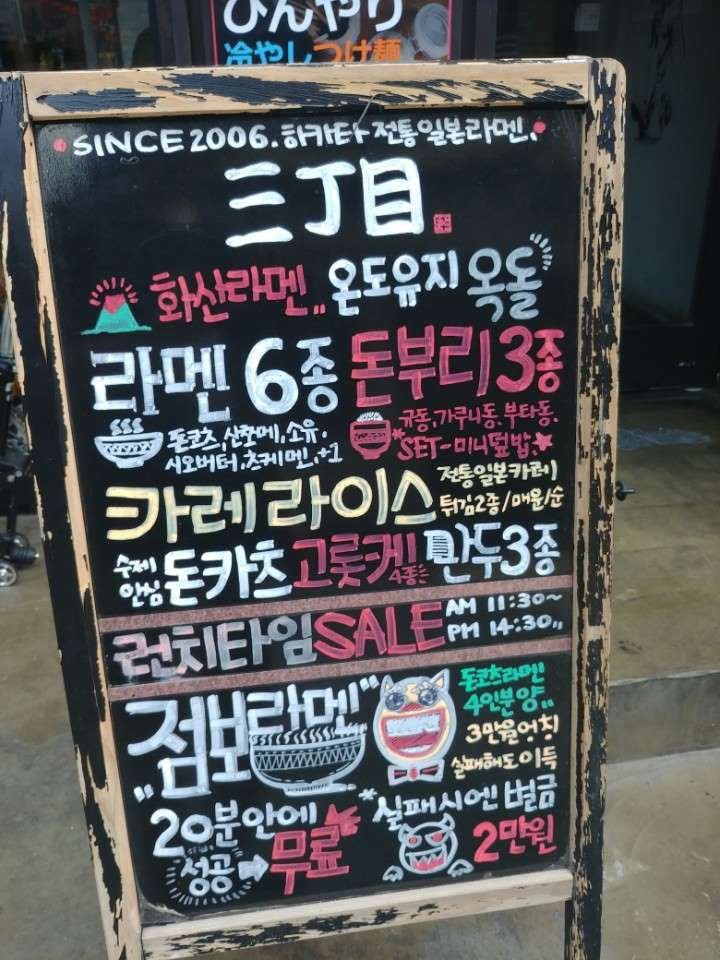 ひんやり
冷やしつけ麺
SINCE 2006. 하카타 전통일본라멘.
三丁目
화산라멘.. 온도유지 옥돌
라멘 6종
돈코츠, 신호메, 소유.
시오버터, 츠케멘, +1
돈부리 3종
규동, 가루니동, 부타동,
*SET-미니덮밥.
카레라이스
전통일본카레
튀김2종/매운/순
수제
안심
돈카츠 고롯케 4종 만두3종
런치타임 SALE
AM 11:30~
PM 14:30..
"점보라멘"
돈코츠라멘
4인분양..
3만원어치
실패해도이득
20분안에
성공 → 무료
*실패시엔 벌금
2만원